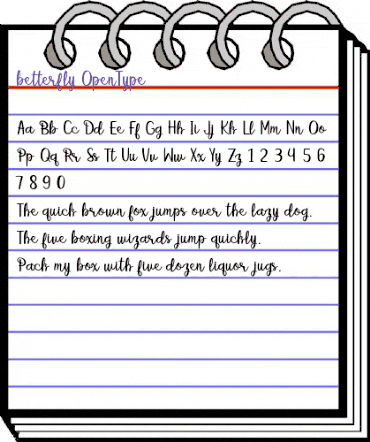 betterfly OpenType
Aa Bb Cc Dd Ee Ff Gg Hh Ii Jj Kk Ll Mm Nn Oo
Pp Qq Rr Ss Tt Uu Vv Ww Xx Yy Zz 1 2 3 4 5 6
7 8 9 0
The quick brown fox jumps over the lazy dog.
The five boxing wizards jump quickly.
Pack my box with five dozen liquor jugs.